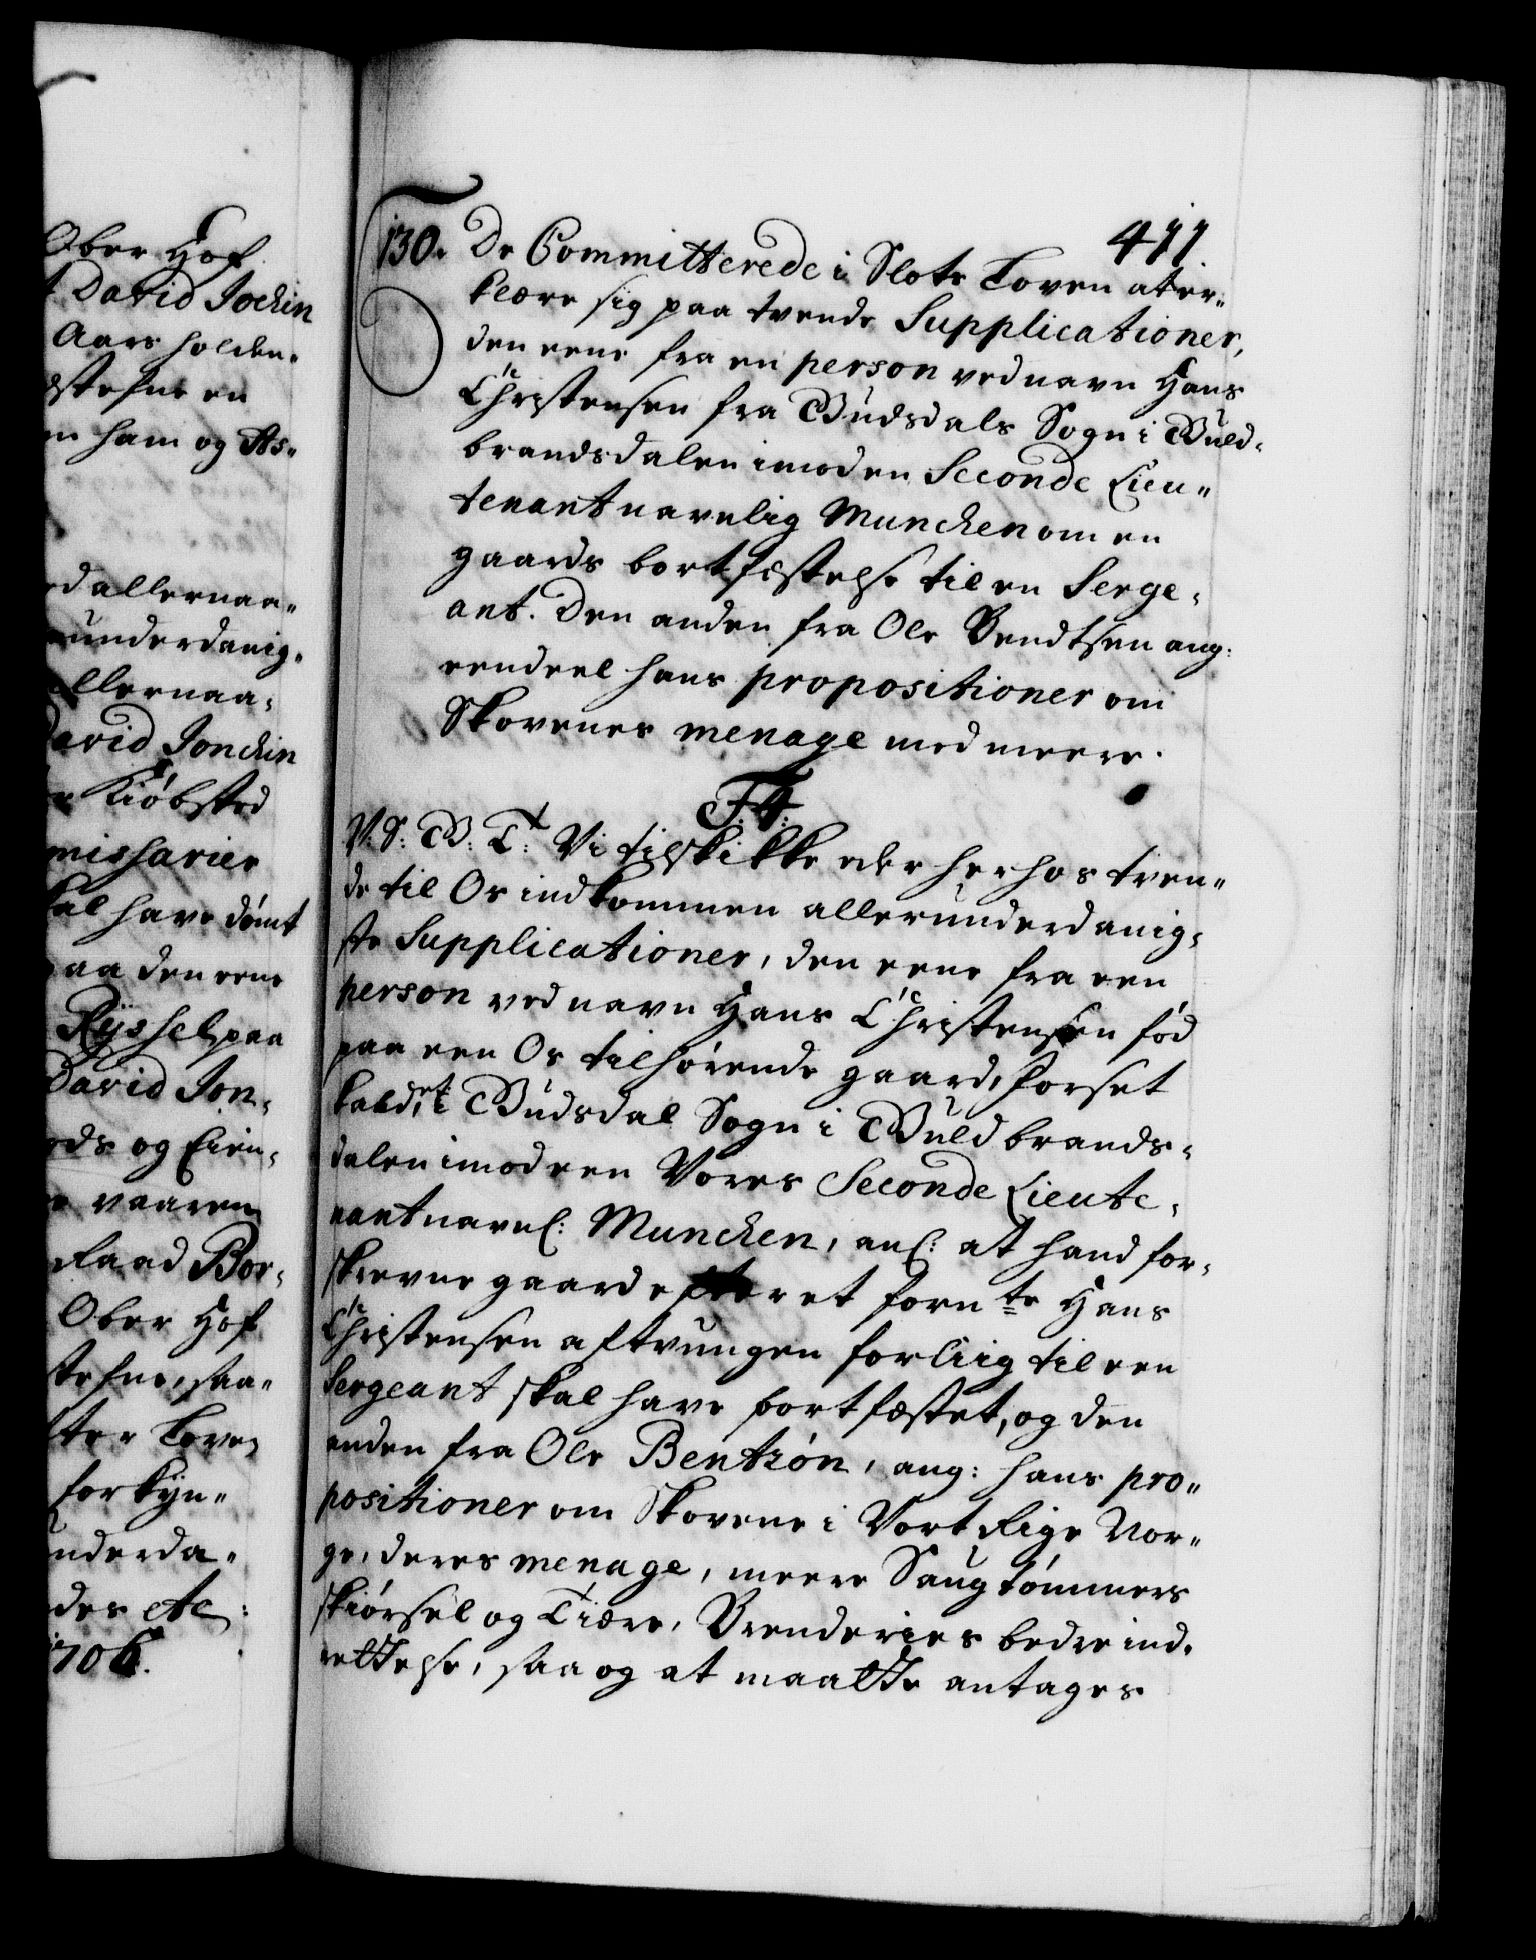 Ober Hof
David Jochin
Aars holden¬
stefne en
ham og As¬
allernaa¬
underdanig¬
allernaa¬
David Jonchin
Kiöbsted
missarier
skal have dömt
paa den eene
Rÿssel paa
David Jon¬
og Eien¬
vaaren
Raad Bor¬
Ober Hof
stefne, saa¬
efter Loven
forkÿn¬
underda¬
etc:
1706.
411
130. De Committerede i Slots Loven at er¬
klære sig paa tvende Supplicationer,
den eene fra en person ved navn Hans
Christensen fra Gudsdals Sogn i Guld¬
brandsdalen imod en Seconde Lieu¬
tenant navnlig Munchen om en
gaards bortfæstelse til en Serge¬
ant. Den anden fra Ole Bendtsen ang:
eendeel hans propositioner om
Skovenes menage med meere.
F. 4.
V: S: G: T: Vi tilskikke eder herhos tven¬
de til Os indkommen allerunderdanig¬
ste Supplicationer, den eene fra een
person ved navn Hans Christensen fød
paa een Os tilhørende gaard, Forset
kaldet i Gudsdal Sogn i Guldbrands¬
dalen imod een Vores Seconde Lieute¬
nant navnl: Munchen, anl: at hand for¬
skrevne gaard efter et fornte Hans
Christensen aftvungen forliig til een
Sergeant skal have bortfæstet, og den
anden fra Ole Bentzön, ang: hans pro¬
positioner om Skovene i Vort Rige Nor¬
ge, deres menage, meere Saugtømmers
skiørsel og Tiære, Brenderies bedre ind¬
rettelse, saa og at maatte antages